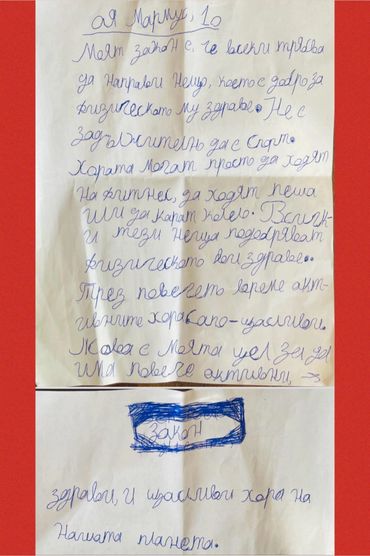 ая Мармут, 10
Моят закон е, че всеки трябва
да направи нещо, което е добро за
физическото му здраве. Не е
задължително да е спорт.
Хората могат просто да ходят
на фитнес, да ходят пеша
или да карат колело. Всичк-
и тези неща подобряват
физическото ви здраве.
През повечето време акт-
ивните хора са по-щастливи.
Това е моята цел за да
има повече активни, →
Закон
здрави, и щастливи хора на
нашата планета.